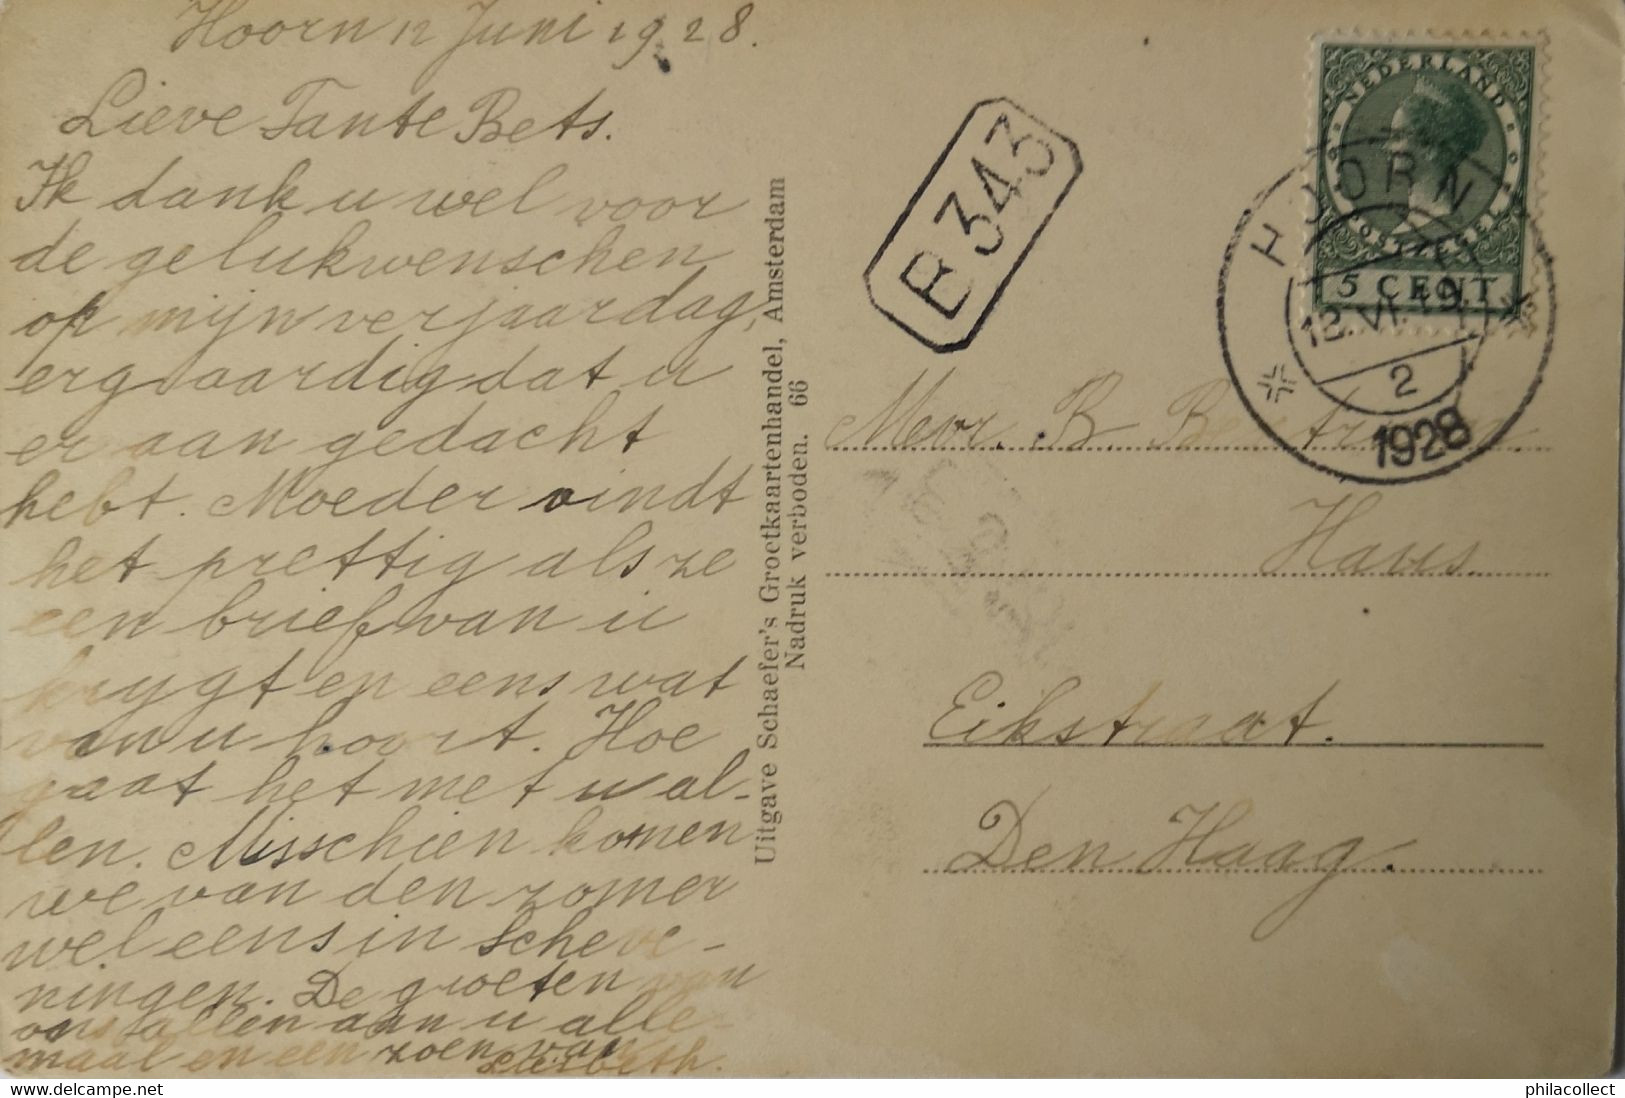 Hoorn 12 Juni 1928.
Lieve Tante Bets.
Ik dank u wel voor
de gelukwenschen
op mijn verjaardag,
erg aardig dat u
er aan gedacht
hebt. Moeder vindt
het prettig als ze
een brief van u
krygt en eens wat
van u hoort. Hoe
gaat het met u al-
len. Misschien komen
we van den zomer
wel eens in Scheve-
ningen. De groeten van
ons allen aan u alle-
maal en een zoen van
Liesbeth.
Uitgave Schaefer's Grootkaartenhandel, Amsterdam
Nadruk verboden. 66
B 343
NEDERLAND
POSTZEGEL
5 CENT
HOORN
12.VI.19
2
1928
Mevr. B.
Huis.
Eikstraat.
Den Haag.
philacollect